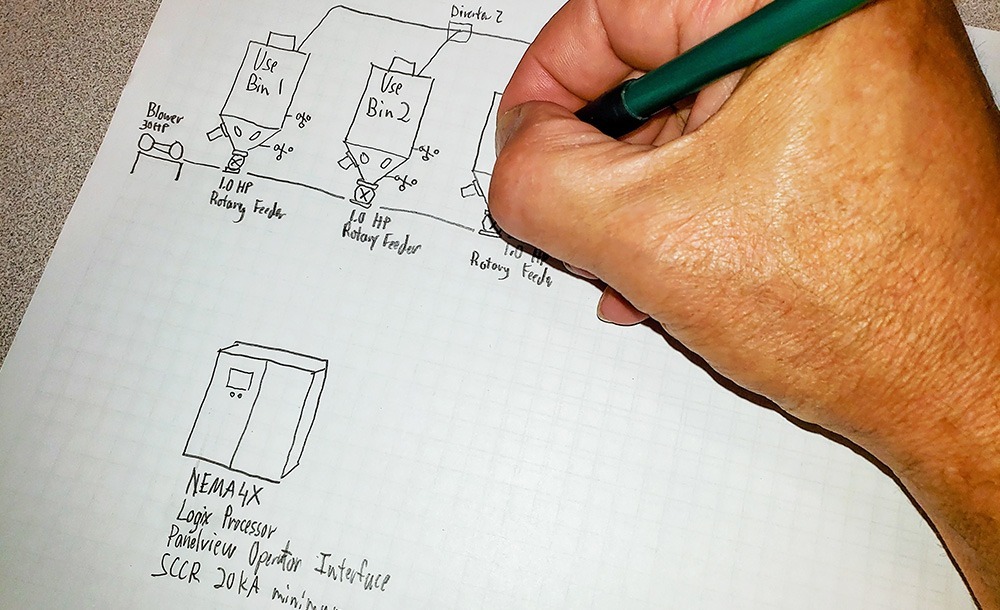 Diverter 2
Use
Bin 1
Use
Bin 2
Blower
30HP
1.0 HP
Rotary Feeder
1.0 HP
Rotary Feeder
1.0 HP
Rotary Feeder
NEMA4X
Logix Processor
Panelview Operator Interface
SCCR 20kA